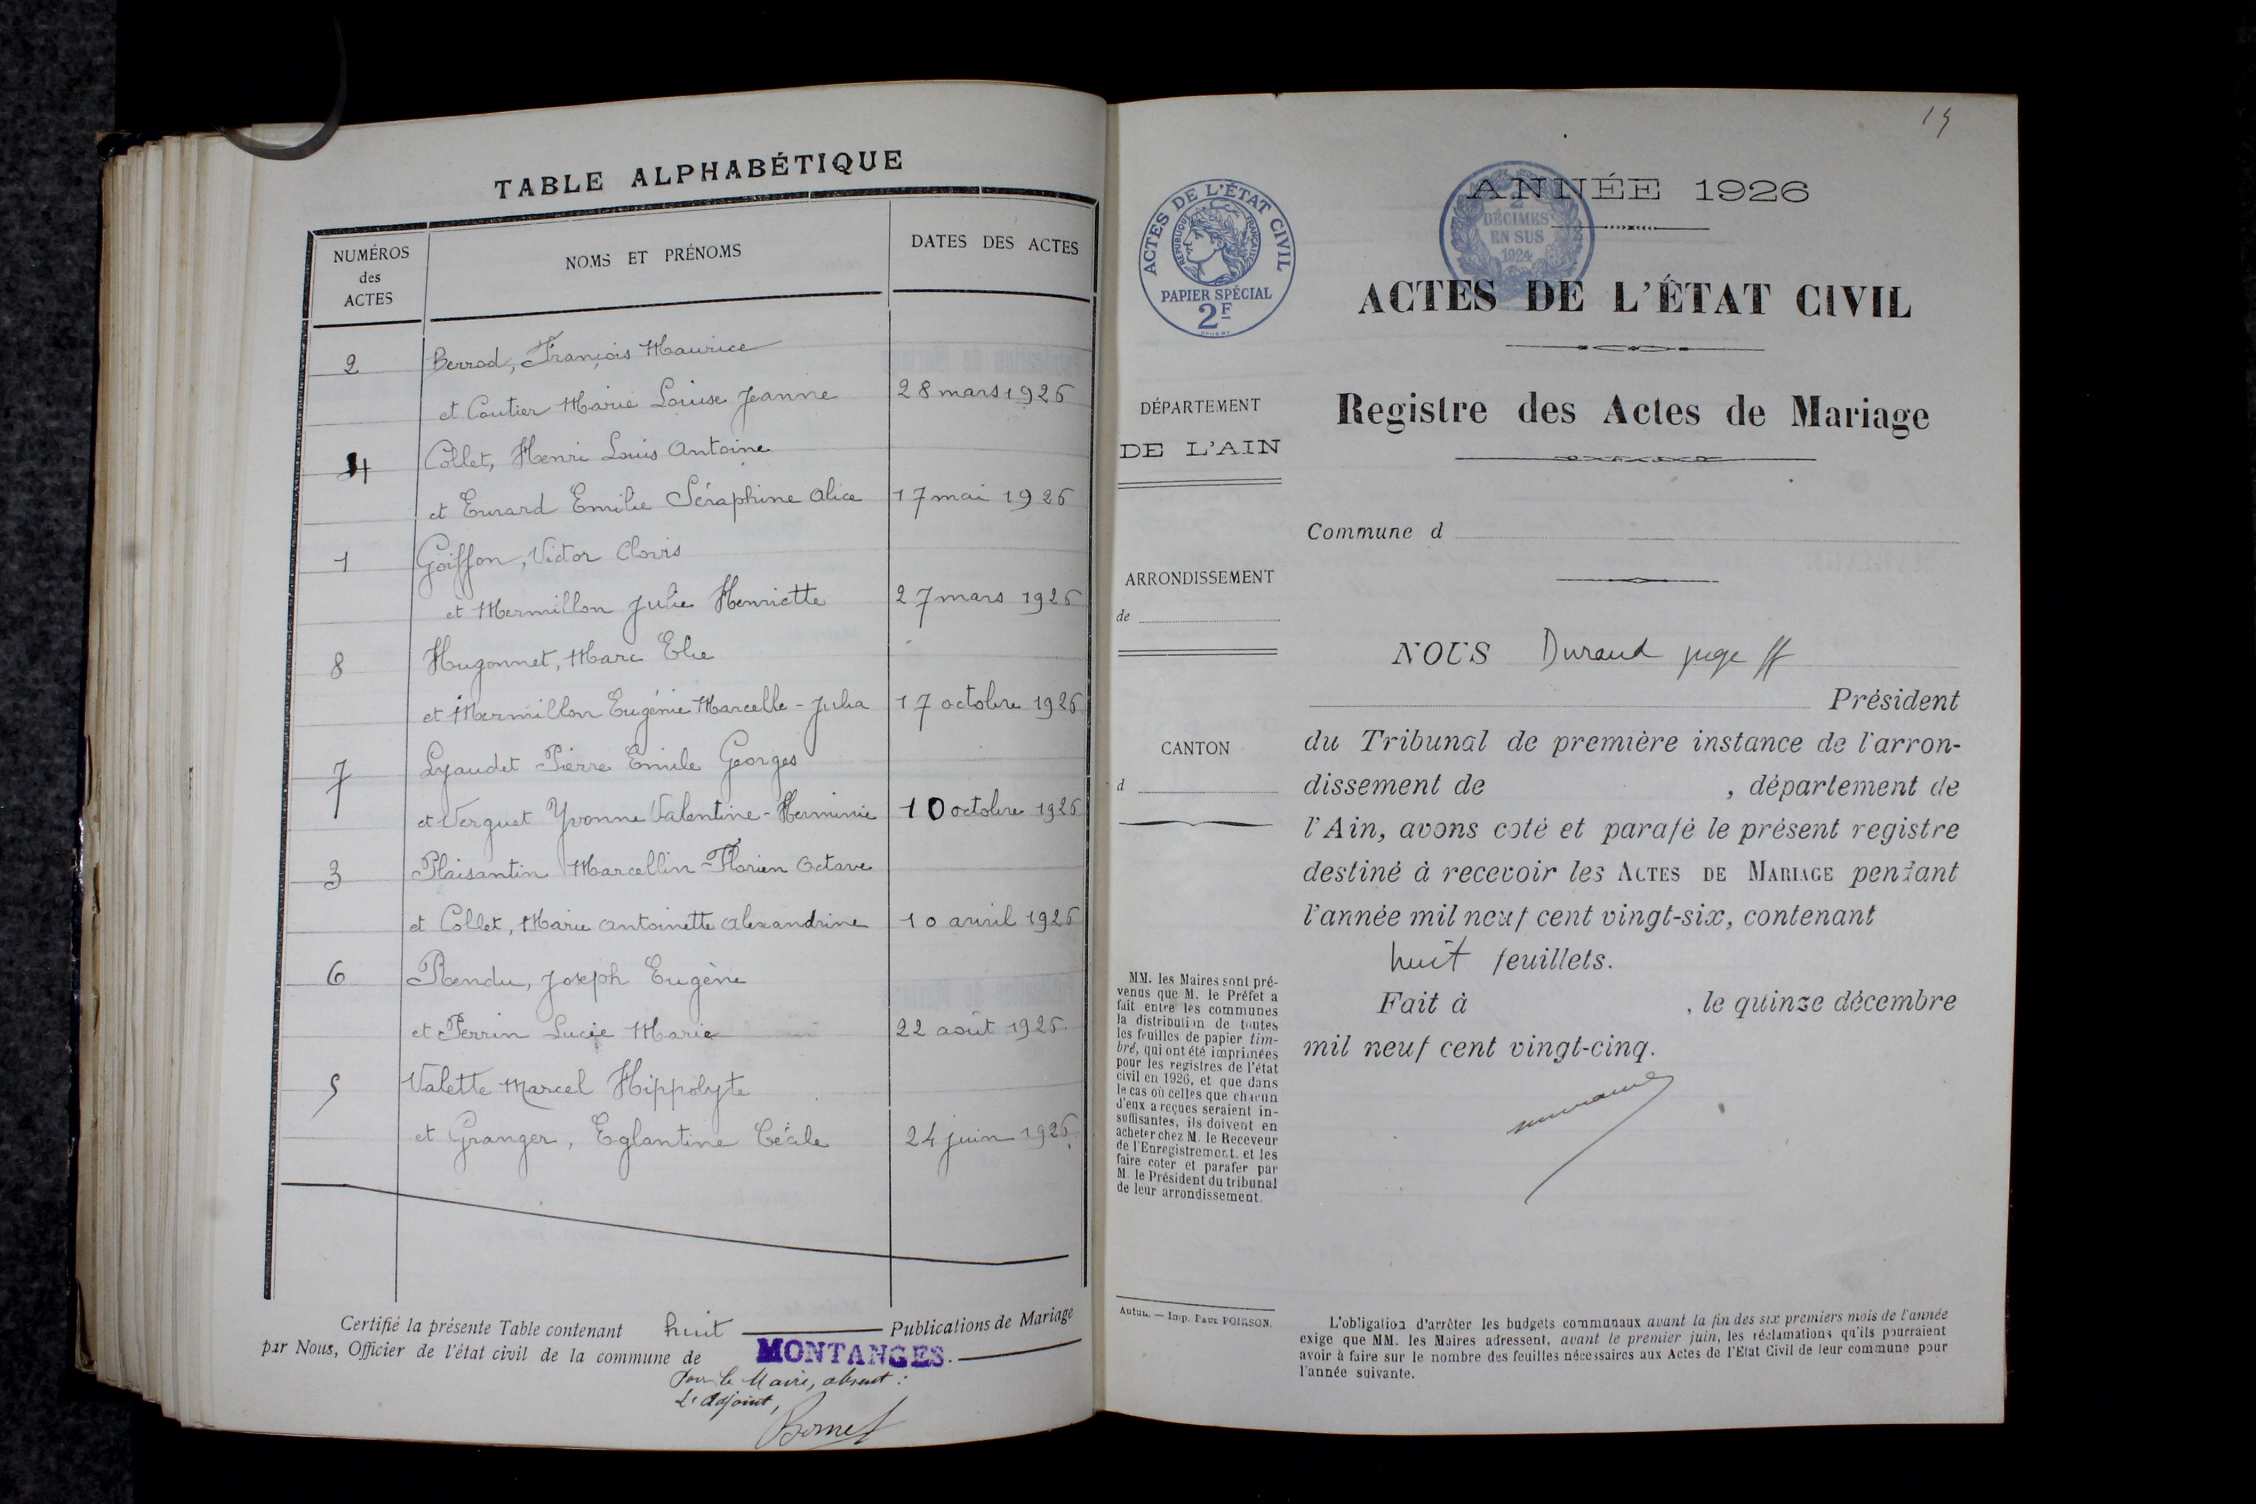 TABLE ALPHABÉTIQUE
NUMÉROS
des
ACTES
NOMS ET PRÉNOMS
DATES DES ACTES
2 Berrod, François Maurice
et Coutier Marie Louise Jeanne 28 mars 1926
4 Collet, Henri Louis Antoine
et Evrard Emilie Séraphine Alice 17 mai 1926
1 Goiffon, Victor Clovis
et Mermillon Julie Henriette 27 mars 1926
8 Hugonnet, Marc Elie
et Mermillon Eugénie Marcelle - Julia 17 octobre 1926
7 Lyaudet Pierre Emile Georges
et Verguet Yvonne Valentine - Herminie 10 octobre 1926
3 Plaisantin Marcellin - Florien Octave
et Collet, Marie Antoinette Alexandrine 10 avril 1926
6 Rendu, Joseph Eugène
et Perrin Lucie Marie 22 août 1926.
5 Valette Marcel Hippolyte
et Granger, Eglantine Cécile 24 juin 1926.
Certifié la présente Table contenant huit Publications de Mariage
par Nous, Officier de l'état civil de la commune de MONTANGES.
Pour le Maire, absent :
L'Adjoint,
Bornet
19
ACTES DE L'ÉTAT CIVIL
RÉPUBLIQUE FRANÇAISE
PAPIER SPÉCIAL
2F
2
DÉCIMES
EN SUS
1924
ANNÉE 1926
ACTES DE L'ÉTAT CIVIL
Registre des Actes de Mariage
DÉPARTEMENT
DE L'AIN
ARRONDISSEMENT
de
CANTON
d
MM. les Maires sont pré-
venus que M. le Préfet a
fait entre les communes
la distribution de toutes
les feuilles de papier tim-
bré, qui ont été imprimées
pour les registres de l'état
civil en 1926, et que dans
le cas où celles que chacun
d'eux a reçues seraient in-
suffisantes, ils doivent en
acheter chez M. le Receveur
de l'Enregistrement, et les
faire coter et parafer par
M. le Président du tribunal
de leur arrondissement.
Autun. — Imp. Paul POIRSON.
Commune d
NOUS Durand juge ff
Président
du Tribunal de première instance de l'arron-
dissement de , département de
l'Ain, avons coté et parafé le présent registre
destiné à recevoir les ACTES DE MARIAGE pendant
l'année mil neuf cent vingt-six, contenant
huit feuillets.
Fait à , le quinze décembre
mil neuf cent vingt-cinq.
L'obligation d'arrêter les budgets communaux avant la fin des six premiers mois de l'année
exige que MM. les Maires adressent, avant le premier juin, les réclamations qu'ils pourraient
avoir à faire sur le nombre des feuilles nécessaires aux Actes de l'Etat Civil de leur commune pour
l'année suivante.